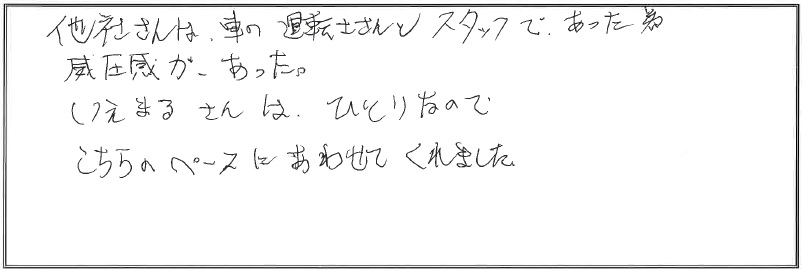 他社さんは、車の運転士さんとスタッフで、あった為
威圧感が、あった。
いえまるさんは、ひとりなので
こちらのペースにあわせてくれました